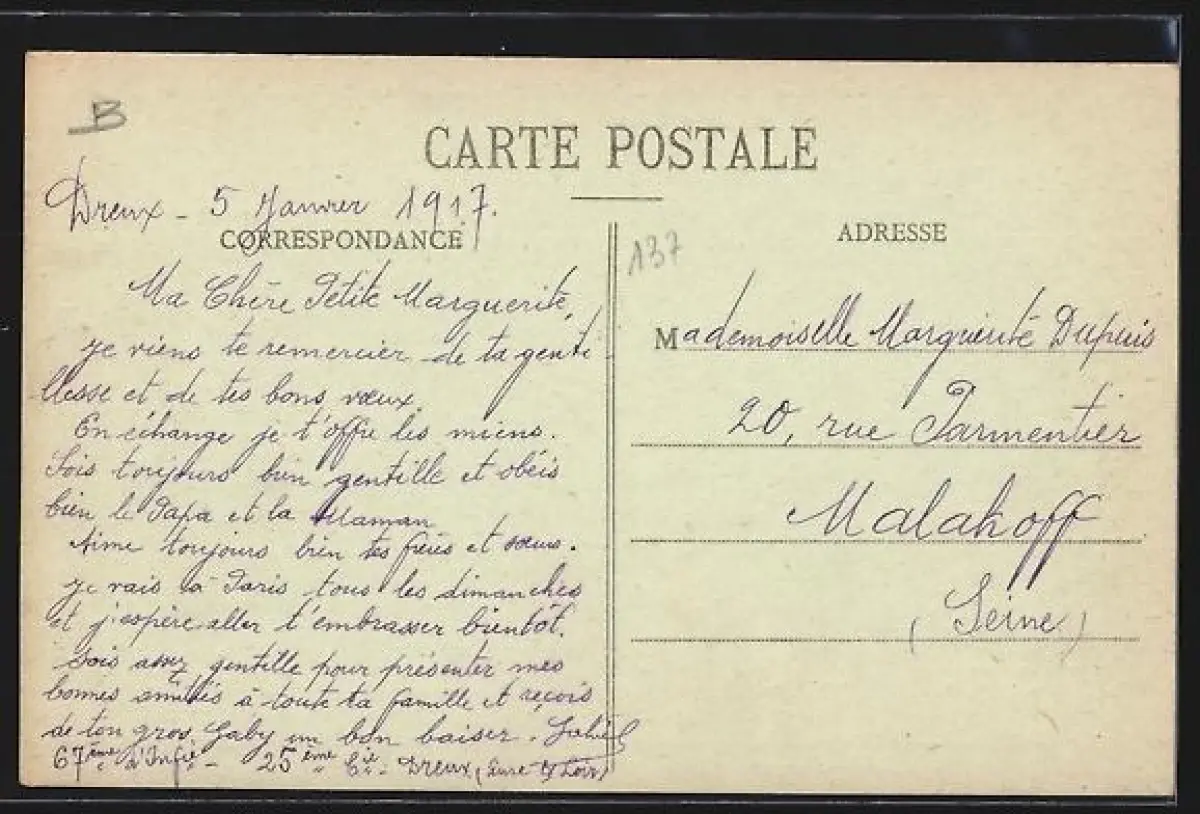 B
CARTE POSTALE
Dreux - 5 Janvier 1917.
CORRESPONDANCE
Ma Chère Petite Marguerite,
je viens te remercier de ta genti
llesse et de tes bons vœux.
En échange je t'offre les miens.
Sois toujours bien gentille et obéis
bien le Papa et la Maman
Aime toujours bien tes frères et sœurs.
Je vais à Paris tous les dimanches
et j'espère aller t'embrasser bientôt.
Sois assez gentille pour présenter mes
bonnes amitiés à toute ta famille et reçois
de ton gros Gaby un bon baiser. Gabriel
67ème d'Infie - 25ème Cie - Dreux (Eure & Loir)
137
ADRESSE
Mademoiselle Marguerite Dupuis
20, rue Parmentier
Malakoff
(Seine)